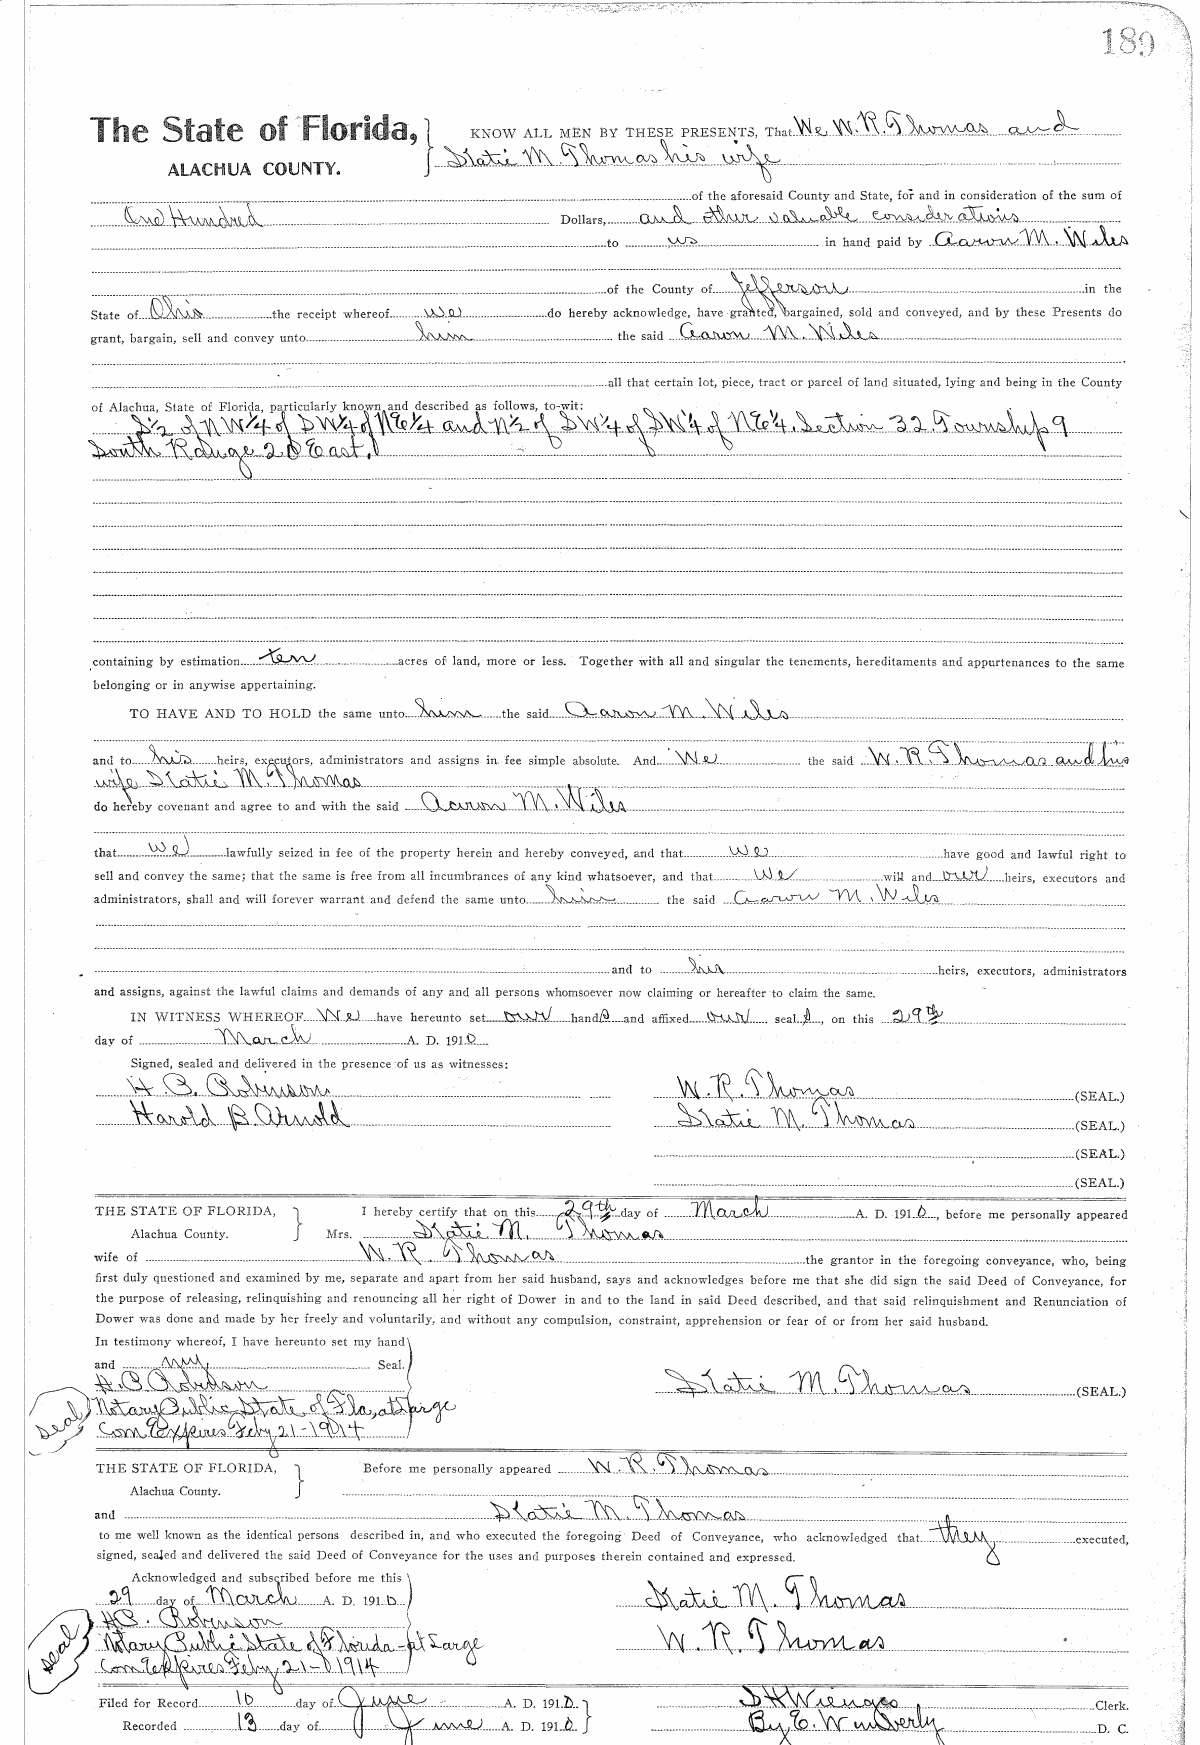 189
The State of Florida, KNOW ALL MEN BY THESE PRESENTS, That We W. R. Thomas and
ALACHUA COUNTY. Katie M. Thomas his wife
of the aforesaid County and State, for and in consideration of the sum of
One Hundred Dollars, and other valuable considerations
to us in hand paid by Aaron M. Wiles
of the County of Jefferson in the
State of Ohio the receipt whereof we do hereby acknowledge, have granted, bargained, sold and conveyed, and by these Presents do
grant, bargain, sell and convey unto him the said Aaron M. Wiles
all that certain lot, piece, tract or parcel of land situated, lying and being in the County
of Alachua, State of Florida, particularly known and described as follows, to-wit:
S½ of NW¼ of SW¼ of NE¼ and N½ of SW¼ of SW¼ of NE¼. Section 32. Township 9
South Range 20 East.
containing by estimation ten acres of land, more or less. Together with all and singular the tenements, hereditaments and appurtenances to the same
belonging or in anywise appertaining.
TO HAVE AND TO HOLD the same unto him the said Aaron M. Wiles
and to his heirs, executors, administrators and assigns in fee simple absolute. And We the said W. R. Thomas and his
wife Katie M. Thomas
do hereby covenant and agree to and with the said Aaron M. Wiles
that we lawfully seized in fee of the property herein and hereby conveyed, and that we have good and lawful right to
sell and convey the same; that the same is free from all incumbrances of any kind whatsoever, and that we will and our heirs, executors and
administrators, shall and will forever warrant and defend the same unto him the said Aaron M. Wiles
and to his heirs, executors, administrators
and assigns, against the lawful claims and demands of any and all persons whomsoever now claiming or hereafter to claim the same.
IN WITNESS WHEREOF We have hereunto set our hands and affixed our seals, on this 29th
day of March A. D. 1910
Signed, sealed and delivered in the presence of us as witnesses:
H. C. Robinson W. R. Thomas (SEAL.)
Harold B. Arnold Katie M. Thomas (SEAL.)
(SEAL.)
(SEAL.)
THE STATE OF FLORIDA, I hereby certify that on this 29th day of March A. D. 1910, before me personally appeared
Alachua County. Mrs. Katie M. Thomas
wife of W. R. Thomas the grantor in the foregoing conveyance, who, being
first duly questioned and examined by me, separate and apart from her said husband, says and acknowledges before me that she did sign the said Deed of Conveyance, for
the purpose of releasing, relinquishing and renouncing all her right of Dower in and to the land in said Deed described, and that said relinquishment and Renunciation of
Dower was done and made by her freely and voluntarily, and without any compulsion, constraint, apprehension or fear of or from her said husband.
In testimony whereof, I have hereunto set my hand
and my Seal.
H. C. Robinson Katie M. Thomas (SEAL.)
seal Notary Public State of Fla, at Large
Com Expires Feby 21-1914
THE STATE OF FLORIDA, Before me personally appeared W. R. Thomas
Alachua County.
and Katie M. Thomas
to me well known as the identical persons described in, and who executed the foregoing Deed of Conveyance, who acknowledged that they executed,
signed, sealed and delivered the said Deed of Conveyance for the uses and purposes therein contained and expressed.
Acknowledged and subscribed before me this
29 day of March A. D. 1910 Katie M. Thomas
H C. Robinson
seal Notary Public State of Florida-at Large W. R. Thomas
Com Expires Feby 21-1914
Filed for Record 10 day of June A. D. 1910. S H Wienges Clerk.
Recorded 13 day of June A. D. 1910 By E. Wimberly D. C.